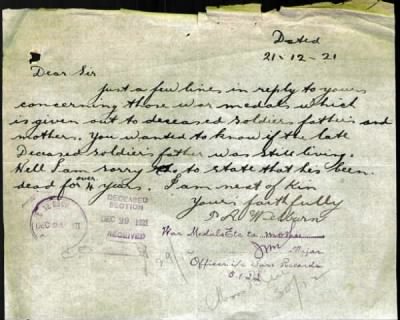 Dated
21-12-21
Dear Sir
Just a few lines in reply to yours
concerning those war medals which
is given out to deceased soldiers father's and
mothers. You wanted to know if the late
Deceased soldier's father was still living.
Well I am sorry to to state that hes been
dead for over 4 years. I am next of kin
Yours faithfully
War Medals Etc to Mother
Major
Officer i/c Base Records
DECEASED
SECTION
DEC 29 1921
RECEIVED